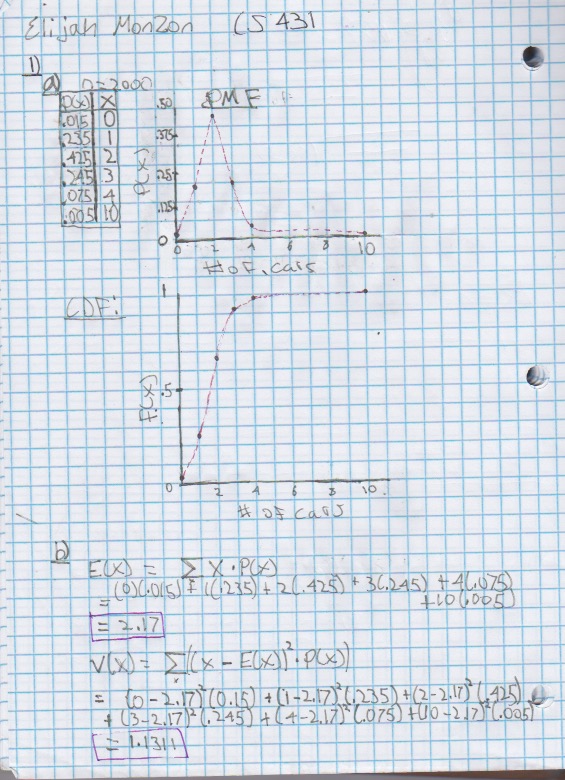 Elijah Monzon CS 431
1)
a) n=2000
P(x) X
.015 0
.235 1
.425 2
.245 3
.075 4
.005 10
PMF
.50
.375
.25
.125
0
0 2 4 6 8 10
P(X)
# OF cars
CDF:
1
.5
0
2 4 6 8 10
F(X)
# OF cars
b)
E(X) = ∑ X · P(X)
= (0)(.015) + 1(.235) + 2(.425) + 3(.245) + 4(.075)
+10(.005)
= 2.17
V(X) = ∑x[(X - E(X))² · P(X)]
= (0-2.17)²(0.15) + (1-2.17)²(.235) + (2-2.17)²(.425)
+ (3-2.17)²(.245) + (4-2.17)²(.075) + (10-2.17)²(.005)
= 1.1311